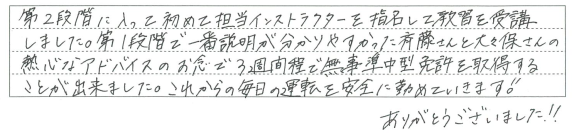 第2段階に入って初めて担当インストラクターを指名して教習を受講
しました。第1段階で一番説明が分かりやすかった斉藤さんと大久保さんの
熱心なアドバイスのお念で3週間程で無事準中型免許を取得する
ことが出来ました。これからの毎日の運転を安全に勤めていきます!!
ありがとうございました!!